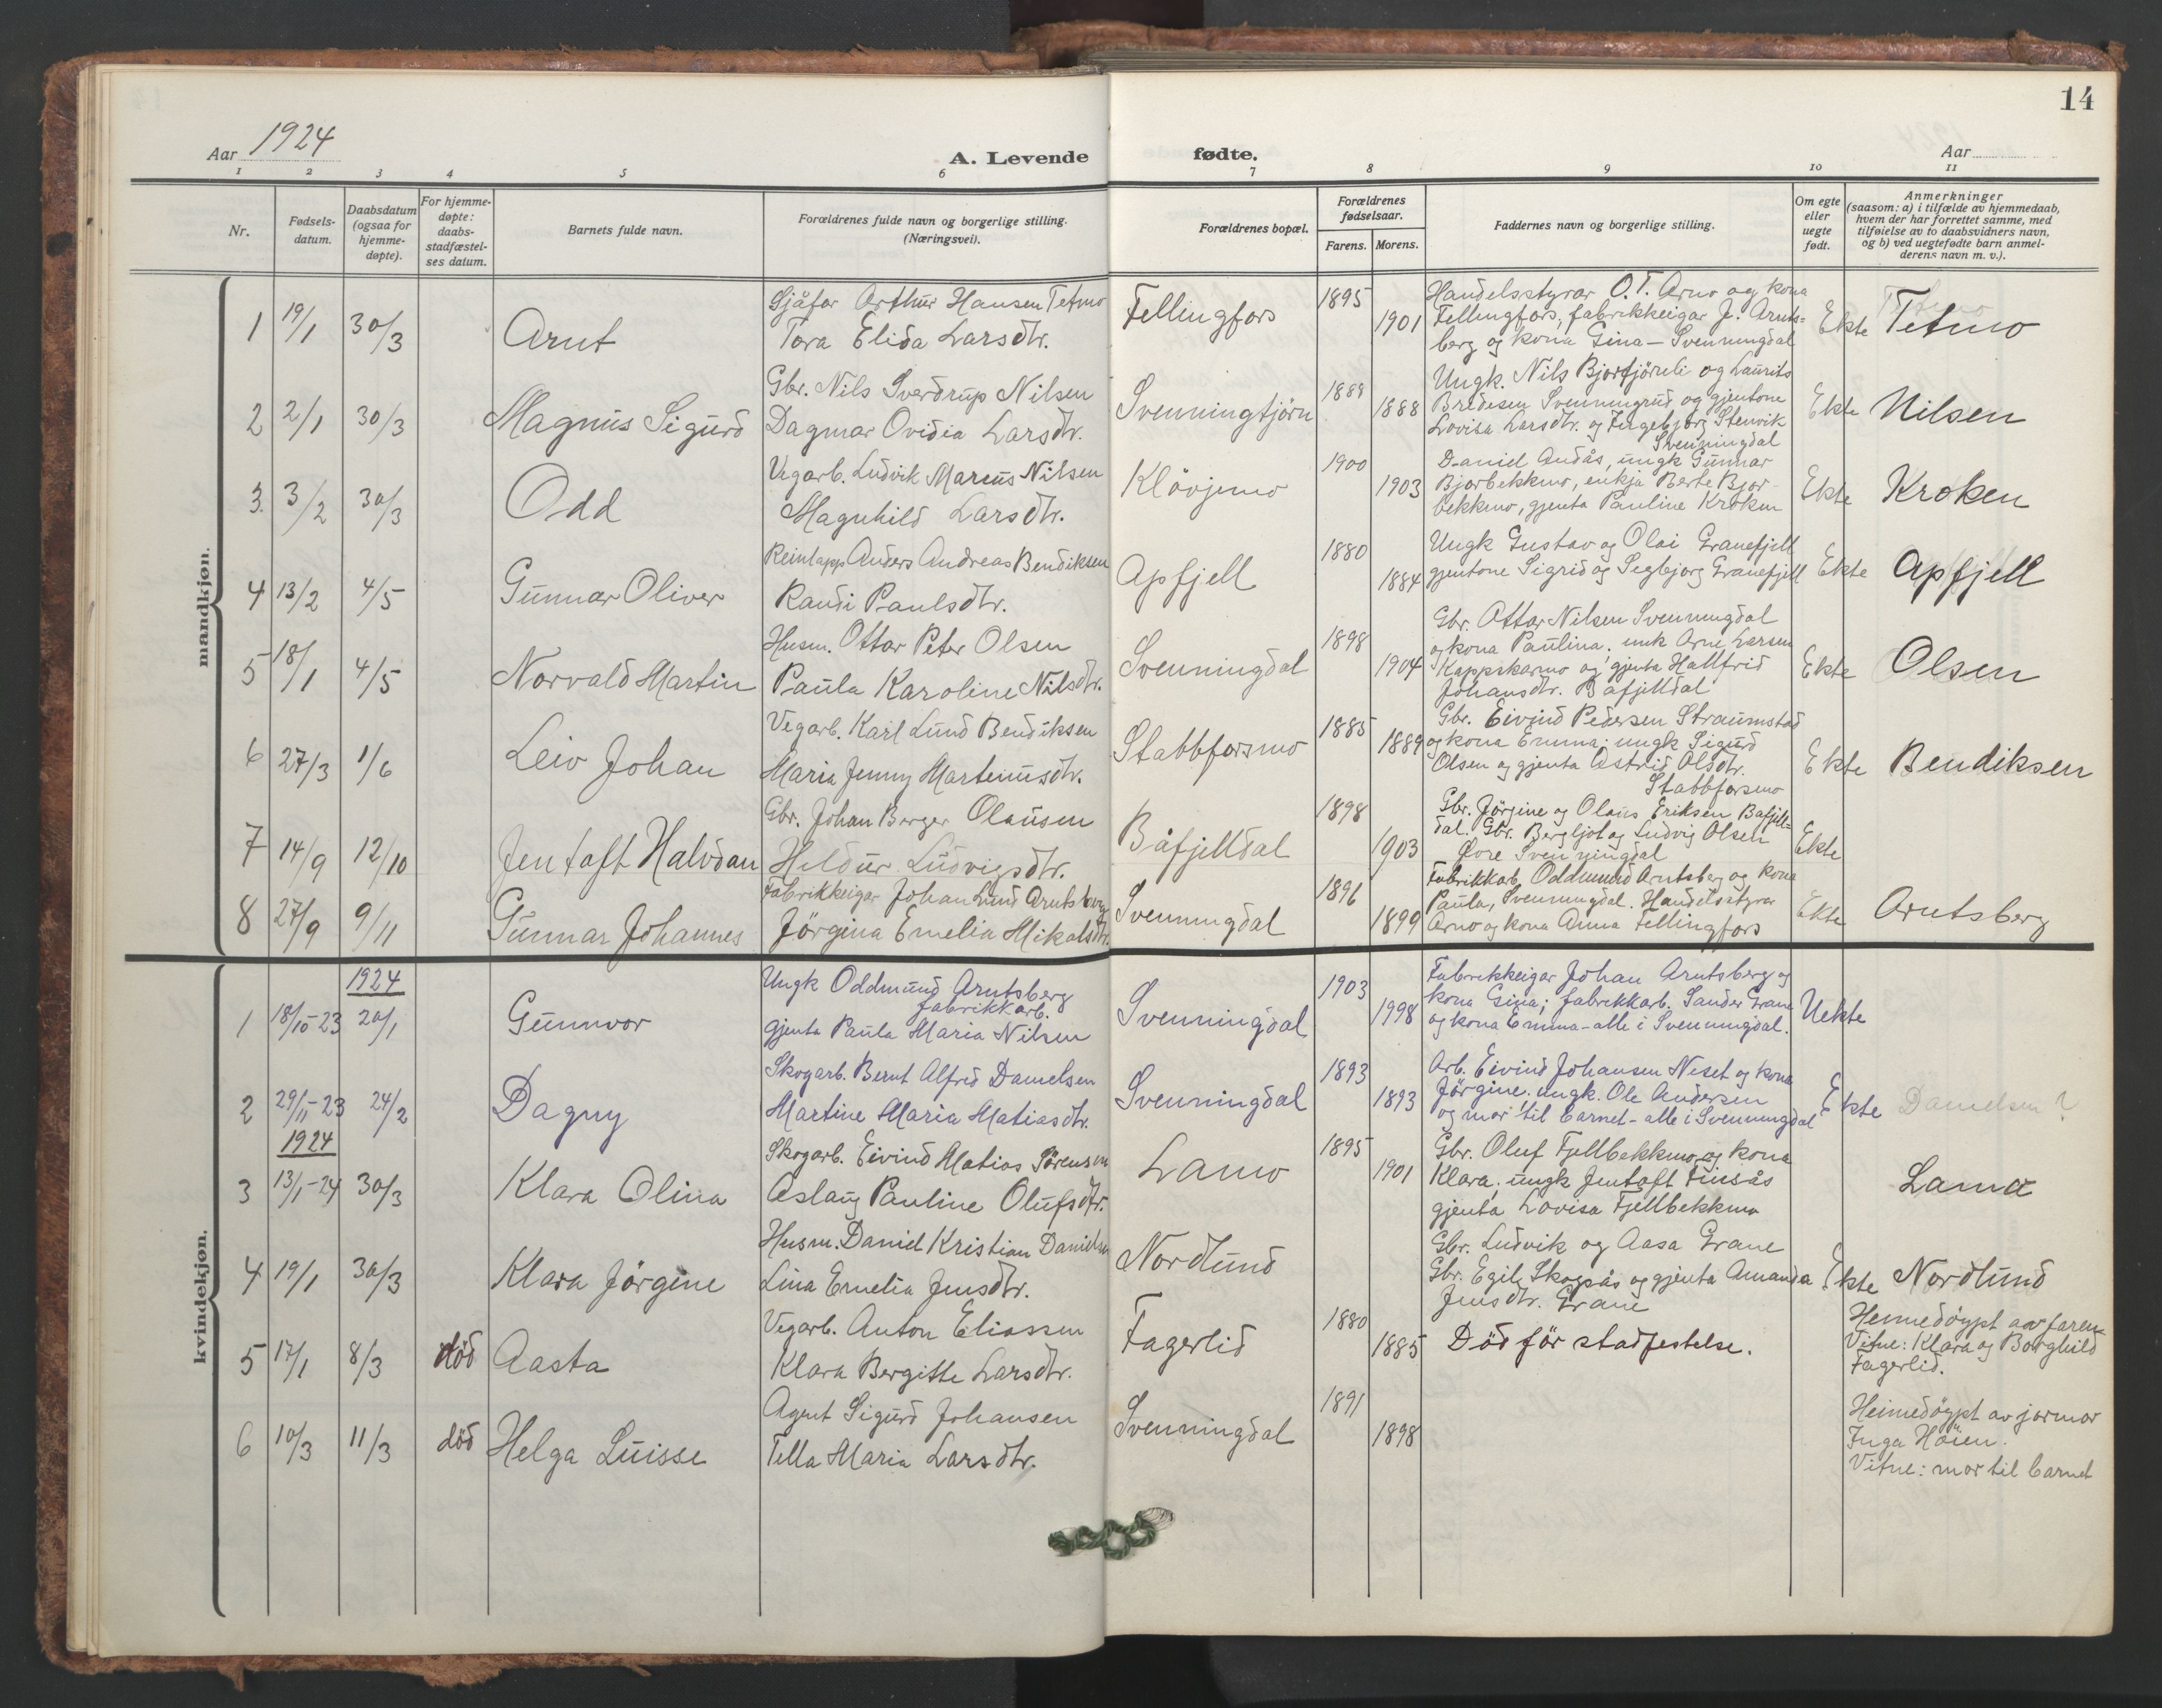 14
Aar 1924
A. Levende
fødte.
Aar
1 2 3 4 5 6 7 8 9 10 11
Nr.
Fødsels-
datum.
Daabsdatum
(ogsaa for
hjemme-
døpte).
For hjemme-
døpte:
daabs-
stadfæstel-
ses datum.
Barnets fulde navn.
Forældrenes fulde navn og borgerlige stilling.
(Næringsvei).
Forældrenes bopæl.
Forældrenes
fødselsaar.
Farens. Morens.
Faddernes navn og borgerlige stilling.
Om egte
eller
uegte
født.
Anmerkninger
(saasom: a) i tilfælde av hjemmedaab,
hvem der har forrettet samme, med
tilføielse av to daabsvidners navn,
og b) ved uegtefødte barn anmel-
derens navn m. v.).
mandkjøn.
1 19/1 30/3 Arnt
Sjåfør Arthur Hansen Tetmo
Tora Elida Larsdtr.
Fellingfors 1895 1901
Handelsstyrar O. T. Arno og kona
Fellingfors, fabrikkeigar J. Arnts=
berg og kona Gina - Svenningdal
Ekte Tetmo
2 2/1 30/3 Magnus Sigurd
Gbr. Nils Sverdrup Nilsen
Dagmar Ovidia Larsdtr.
Svenningtjörn 1888 1888
Ungk. Nils Bjorfjörnli og Laurits
Bredesen Svenningrud og gjentone
Lovisa Larsdtr. og Ingebjørg Stenvik
Svenningdal
Ekte Nilsen
3 3/2 30/3 Odd
Vegarb. Ludvik Marcus Nilsen
Magnhild Larsdtr.
Klövjemo 1900 1903
Daniel Andås, ungk Gunnar
Bjorbekkmo, enkja Berte Bjor-
bekkmo, gjenta Pauline Kroken
Ekte Kroken
4 13/2 4/5 Gunnar Oliver
Reinlapp Anders Andreas Bendiksen
Randi Paulsdtr.
Apfjell 1880 1884
Ungk Gustav og Olai Granefjell
gjentone Sigrid og Segbjorg Granefjell
Ekte Apfjell
5 18/1 4/5 Norvald Martin
Husm. Ottar Peter Olsen
Paula Karoline Nilsdtr.
Svenningdal 1898 1904
Gbr. Ottar Nilsen Svenningdal
og kona Paulina. unk Arne Larsen
Kappskarmo og gjenta Hallfrid
Johansdtr. Båfjelldal
Ekte Olsen
6 27/3 1/6 Leiv Johan
Vegarb. Karl Lund Bendiksen
Maria Jenny Martinusdtr.
Stabbforsmo 1885 1889
Gbr. Eivind Pedersen Straumstad
og kona Emma; ungk Sigurd
Olsen og gjenta Astrid Olsdtr.
Stabbforsmo
Ekte Bendiksen
7 14/9 12/10 Jentoft Halvdan
Gbr. Johan Berger Olausen
Heldur Ludvigsdtr.
Båfjelldal 1898 1903
Gbr. Jörgine og Olaus Eriksen Båfjell=
dal. Gbr. Bergljot og Ludvig Olsen
Øvre Svenningdal
Ekte
8 27/9 9/11 Gunnar Johannes
Fabrikkeigar Johan Lund Arntsberg
Jörgina Emelia Mikalsdtr.
Svenningdal 1896 1899
Fabrikkarb. Oddmund Arntsberg og kona
Paula, Svenningdal. Handelsstyrar
Arno og kona Anna Fellingfors
Ekte Arntsberg
kvindekjøn.
1924
1 18/10-23 20/1 Gunnvor
Ungk Oddmund Arntsberg
fabrikkarb.
gjenta Paula Maria Nilsen
Svenningdal 1903 1998
Fabrikkeigar Johan Arntsberg og
kona Gina; fabrikkarb. Sander Grane
og kona Emma - alle i Svenningdal.
Uekte
2 29/11-23 24/2 Dagny
Skogarb. Bernt Alfred Danielsen
Martine Maria Matiasdtr.
Svenningdal 1893 1893
Arb. Eivind Johansen Neset og kona
Jörgine. ungk. Ole Andersen
og mor til barnet - alle i Svenningdal
Ekte Danielsen?
1924
3 13/1-24 30/3 Klara Olina
Skogarb. Eivind Matias Sörensen
Aslaug Pauline Olufsdtr.
Lamo 1895 1901
Gbr. Oluf Fjellbekkmo og kona
Klara. ungk Jentoft Finsås
gjenta Lovisa Fjellbekkmo
Lama
4 19/1 30/3 Klara Jörgine
Husm. Daniel Kristian Danielsen
Lina Emelia Jensdtr.
Nordlund
Gbr. Ludvik og Aasa Grane
Gbr. Egil Skogsås og gjenta Amanda
Jensdtr. Grane
Ekte Nordlund
5 17/1 8/3 död Aasta
Vegarb. Anton Eliassen
Klara Bergitte Larsdtr.
Fagerlid 1880 1885
Död för stadfestelse.
Heimedöypt av faren
Vitne: Klara og Borghild
Fagerlid.
6 10/3 11/3 död Helga Luisse
Agent Sigurd Johansen
Tella Maria Larsdtr.
Svenningdal 1891 1898
Heimedöypt av jormor
Inga Höien.
Vitne: mor til barnet